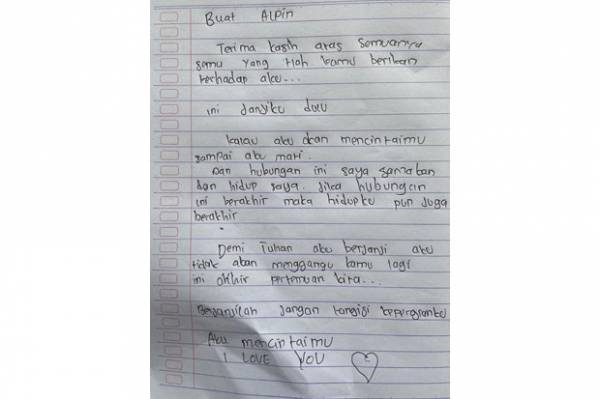 Buat Alpin
Terima kasih atas semuanya
semu yang tlah kamu berikan
terhadap aku...
ini janjiku dulu
kalau aku akan mencintaimu
sampai aku mati.
Dan hubungan ini saya samakan
dan hidup saya. Jika hubungan
ini berakhir maka hidupku pun Juga
berakhir
Demi Tuhan aku berjanji aku
tidak akan menggangu kamu lagi
ini akhir pertemuan kita...
Berjanjilah jangan tangisi kepergianku
Aku mencintaimu
I LOVE YOU